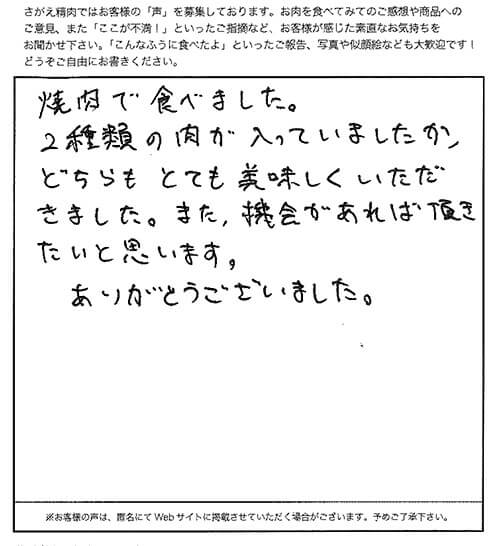 さがえ精肉ではお客様の「声」を募集しております。お肉を食べてみてのご感想や商品への
ご意見、また「ここが不満！」といったご指摘など、お客様が感じた素直なお気持ちを
お聞かせ下さい。「こんなふうに食べたよ」といったご報告、写真や似顔絵なども大歓迎です！
どうぞご自由にお書きください。
焼肉で食べました。
2種類の肉が入っていましたが、
どちらもとても美味しくいただ
きました。また、機会があれば頂き
たいと思います。
ありがとうございました。
※お客様の声は、匿名にてWebサイトに掲載させていただく場合がございます。予めご了承下さい。